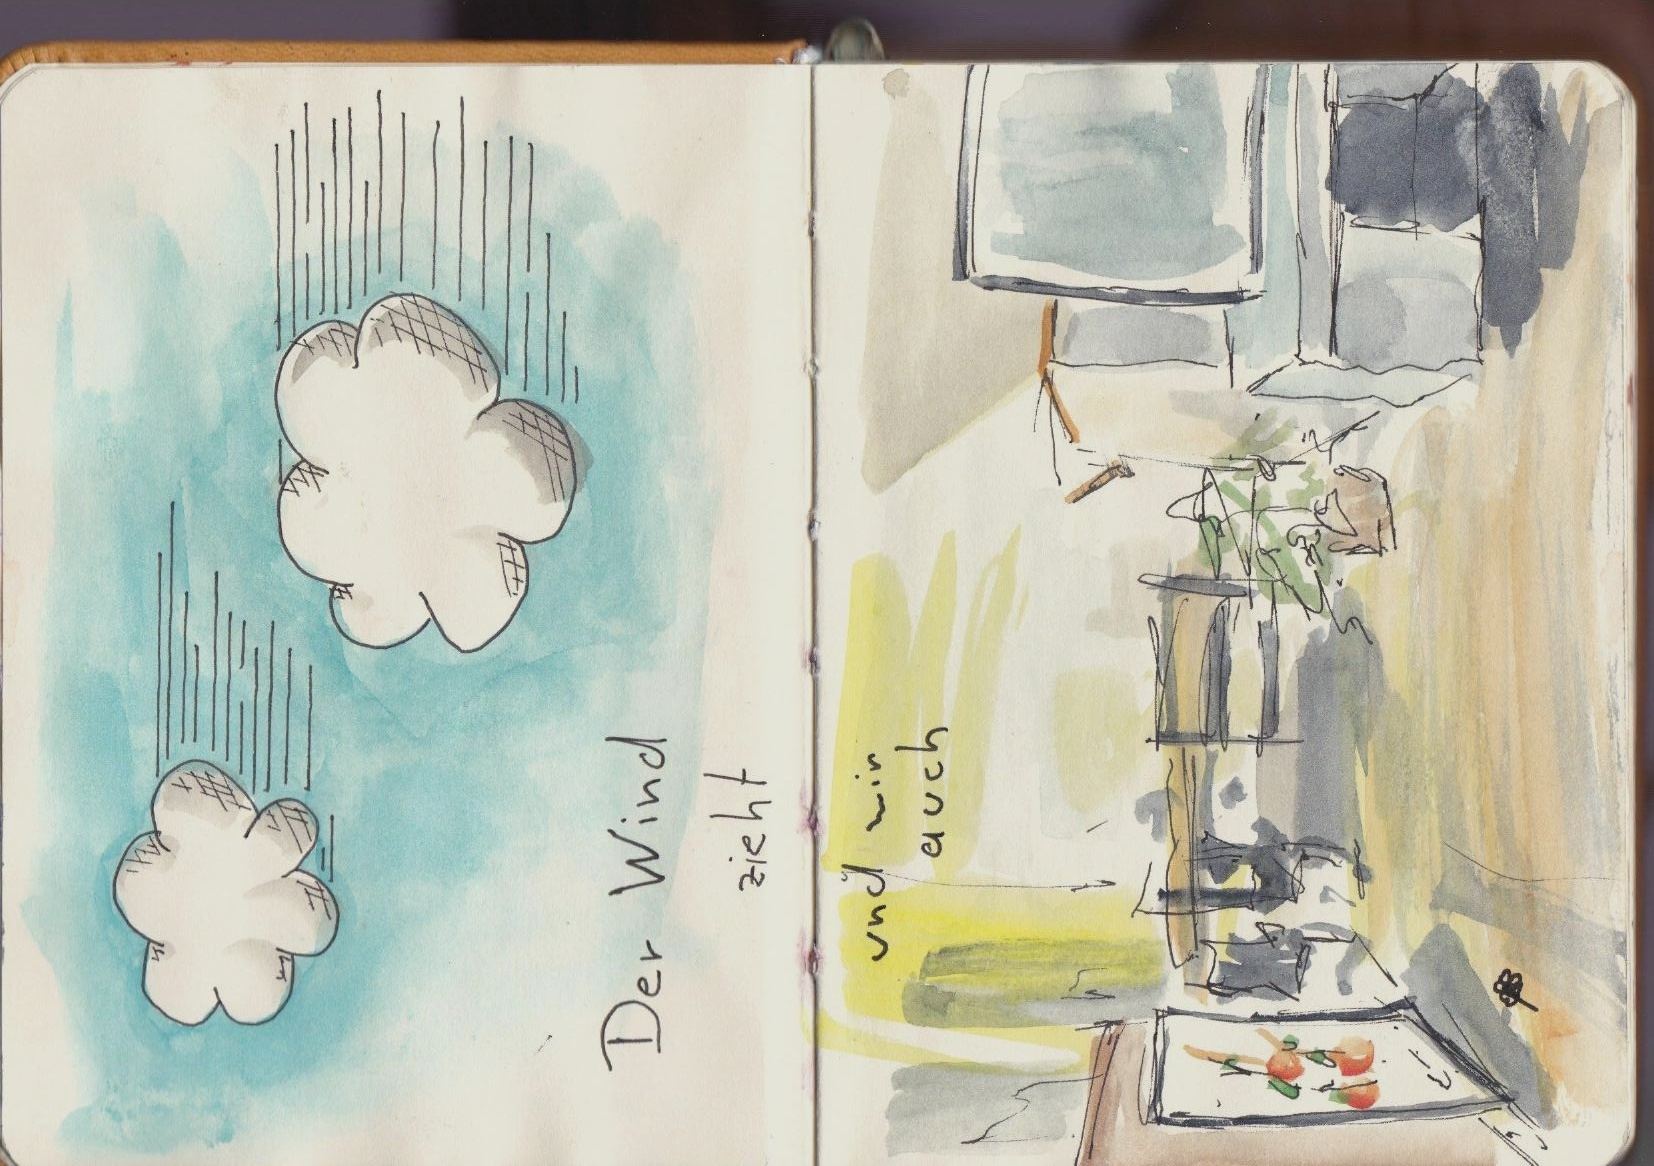 Der Wind
zieht
und wir
auch